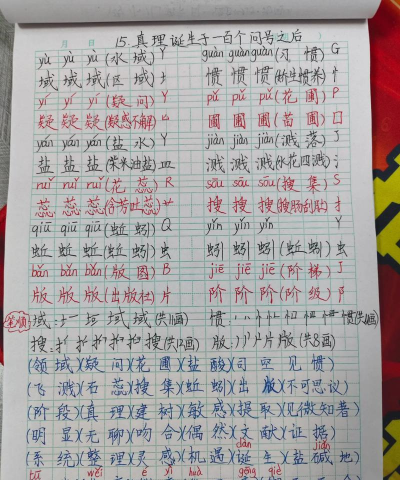 15.真理诞生于一百个问号之后
yù yù yù (水域) Y guàn guàn guàn (习惯) G
域域域(区域)土 惯惯惯(娇生惯养)忄
yí yí yí (疑问) Y pǔ pǔ pǔ (花圃) P
疑疑疑(疑惑不解) 圃圃圃(苗圃)囗
yán yán yán (盐水) Y jiàn jiàn jiàn (溅落) J
盐盐盐(柴米油盐)皿 溅溅溅(水花四溅)氵
ruǐ ruǐ ruǐ (花蕊) R sōu sōu sōu (搜集) S
蕊蕊蕊(含芳吐蕊)艹 搜搜搜(搜肠刮肚)扌
qiū qiū qiū (蚯蚓) Q yǐn yǐn yǐn Y
蚯蚯蚯(蚯蚓)虫 蚓蚓蚓(蚯蚓)虫
bǎn bǎn bǎn (版图) B jiē jiē jiē (阶梯) J
版版版(出版社)片 阶阶阶(阶级)阝
笔顺 域: 域域(共11画) 惯: 惯惯
搜: 搜(共12画) 版: 版(共8画)
(领域)(疑问)(花圃)(盐酸)(司空见惯)
(飞溅)(石蕊)(搜集)(蚯蚓)(出版)(不可思议)
(阶段)(真理)(建树)(敏感)(提取)(见微知著)
(明显)(无聊)(吻合)(偶然)(文献)(证据)
dàn jiǎn
(系统)(整理)(灵感)(机遇)(诞生)(盐碱地)